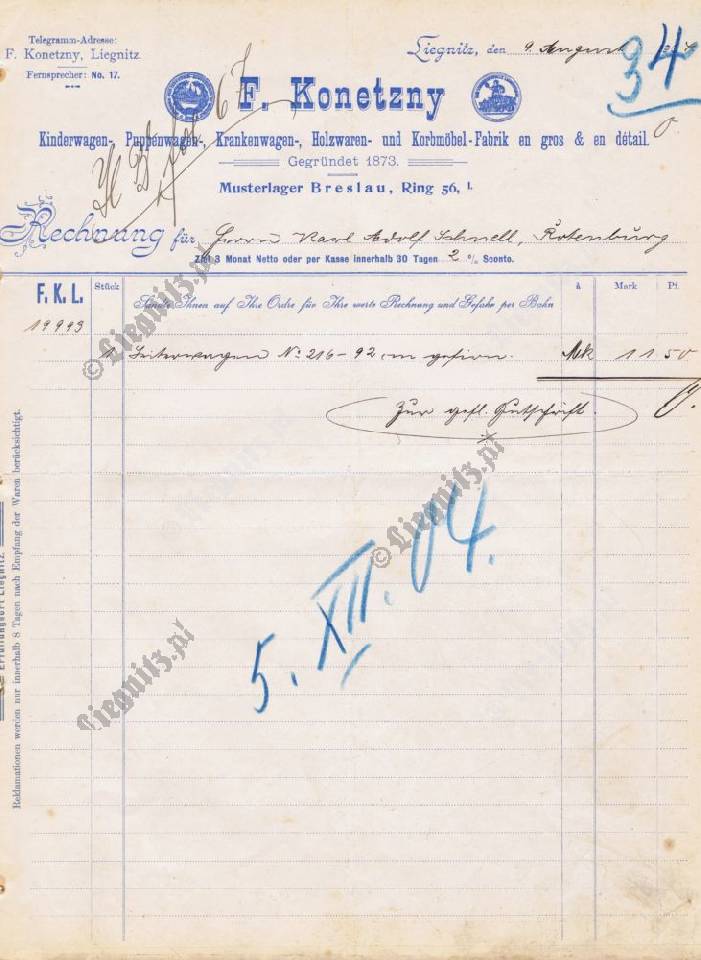 Telegramm-Adresse:
F. Konetzny, Liegnitz.
Fernsprecher: No. 17.
Liegnitz, den 9. August
34
F. Konetzny
Kinderwagen-, Puppenwagen-, Krankenwagen-, Holzwaren- und Korbmöbel-Fabrik en gros & en détail.
Gegründet 1873.
Musterlager Breslau, Ring 56, I.
Rechnung für Herrn Karl Adolf Schnell, Rotenburg
Ziel 3 Monat Netto oder per Kasse innerhalb 30 Tagen 2 % Sconto.
F. K. L. Stück Sandte Ihnen auf Ihre Ordre für Ihre werte Rechnung und Gefahr per Bahn à Mark Pf.
19993
1 Leiterwagen No 216-92 cm gefirn. Mk 11 50
Zur gefl. Gutschrift.
5. XII. 04.
Reklamationen werden nur innerhalb 8 Tagen nach Empfang der Waren berücksichtigt.
Erfüllungsort Liegnitz.
© Liegnitz.pl
© Liegnitz.pl
© Liegnitz.pl
Liegnitz.pl